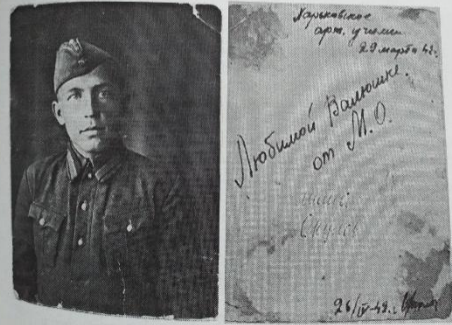 Харьковское
арт. училищ
29 марта 42г.
Любимой Валюшке.
от М.О.
26/IV-42г.